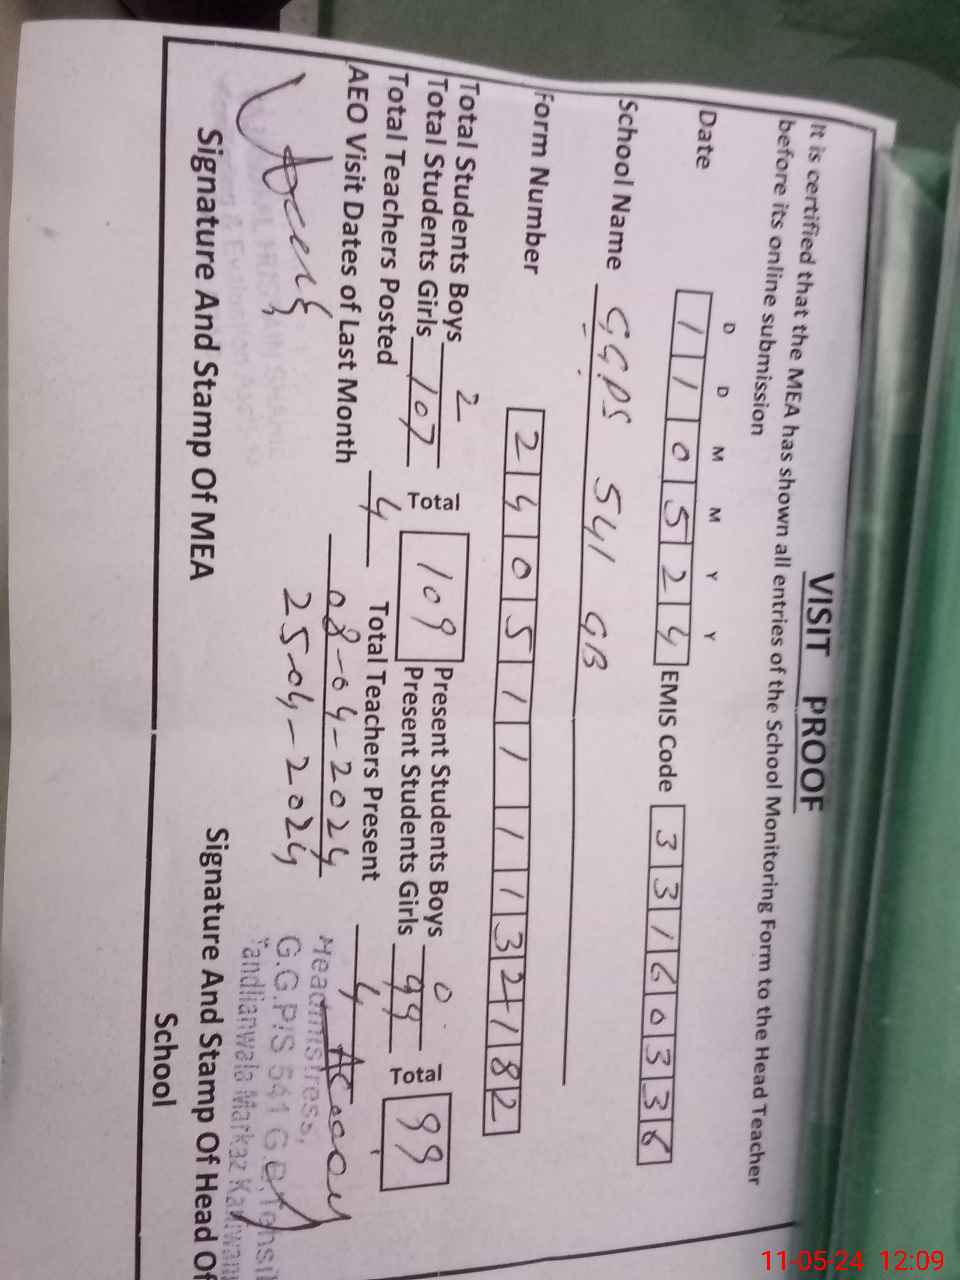 VISIT PROOF
It is certified that the MEA has shown all entries of the School Monitoring Form to the Head Teacher
before its online submission
D D M M Y Y
Date 1 1 0 5 2 4 EMIS Code 3 3 1 6 0 3 3 6
School Name GGPS 541 GB
Form Number 2 4 0 5 1 1 1 1 3 2 1 8 2
Total Students Boys 2 Total 109 Present Students Boys 0 Total 99
Total Students Girls 107 Present Students Girls 99
Total Teachers Posted 4 Total Teachers Present 4
AEO Visit Dates of Last Month 08-04-2024
25-04-2024
Headmistress,
G.G.P/S 541 G.B, Tehsil
Tandlianwala Markaz
Signature And Stamp Of MEA Signature And Stamp Of Head Of
School
11-05-24 12:09